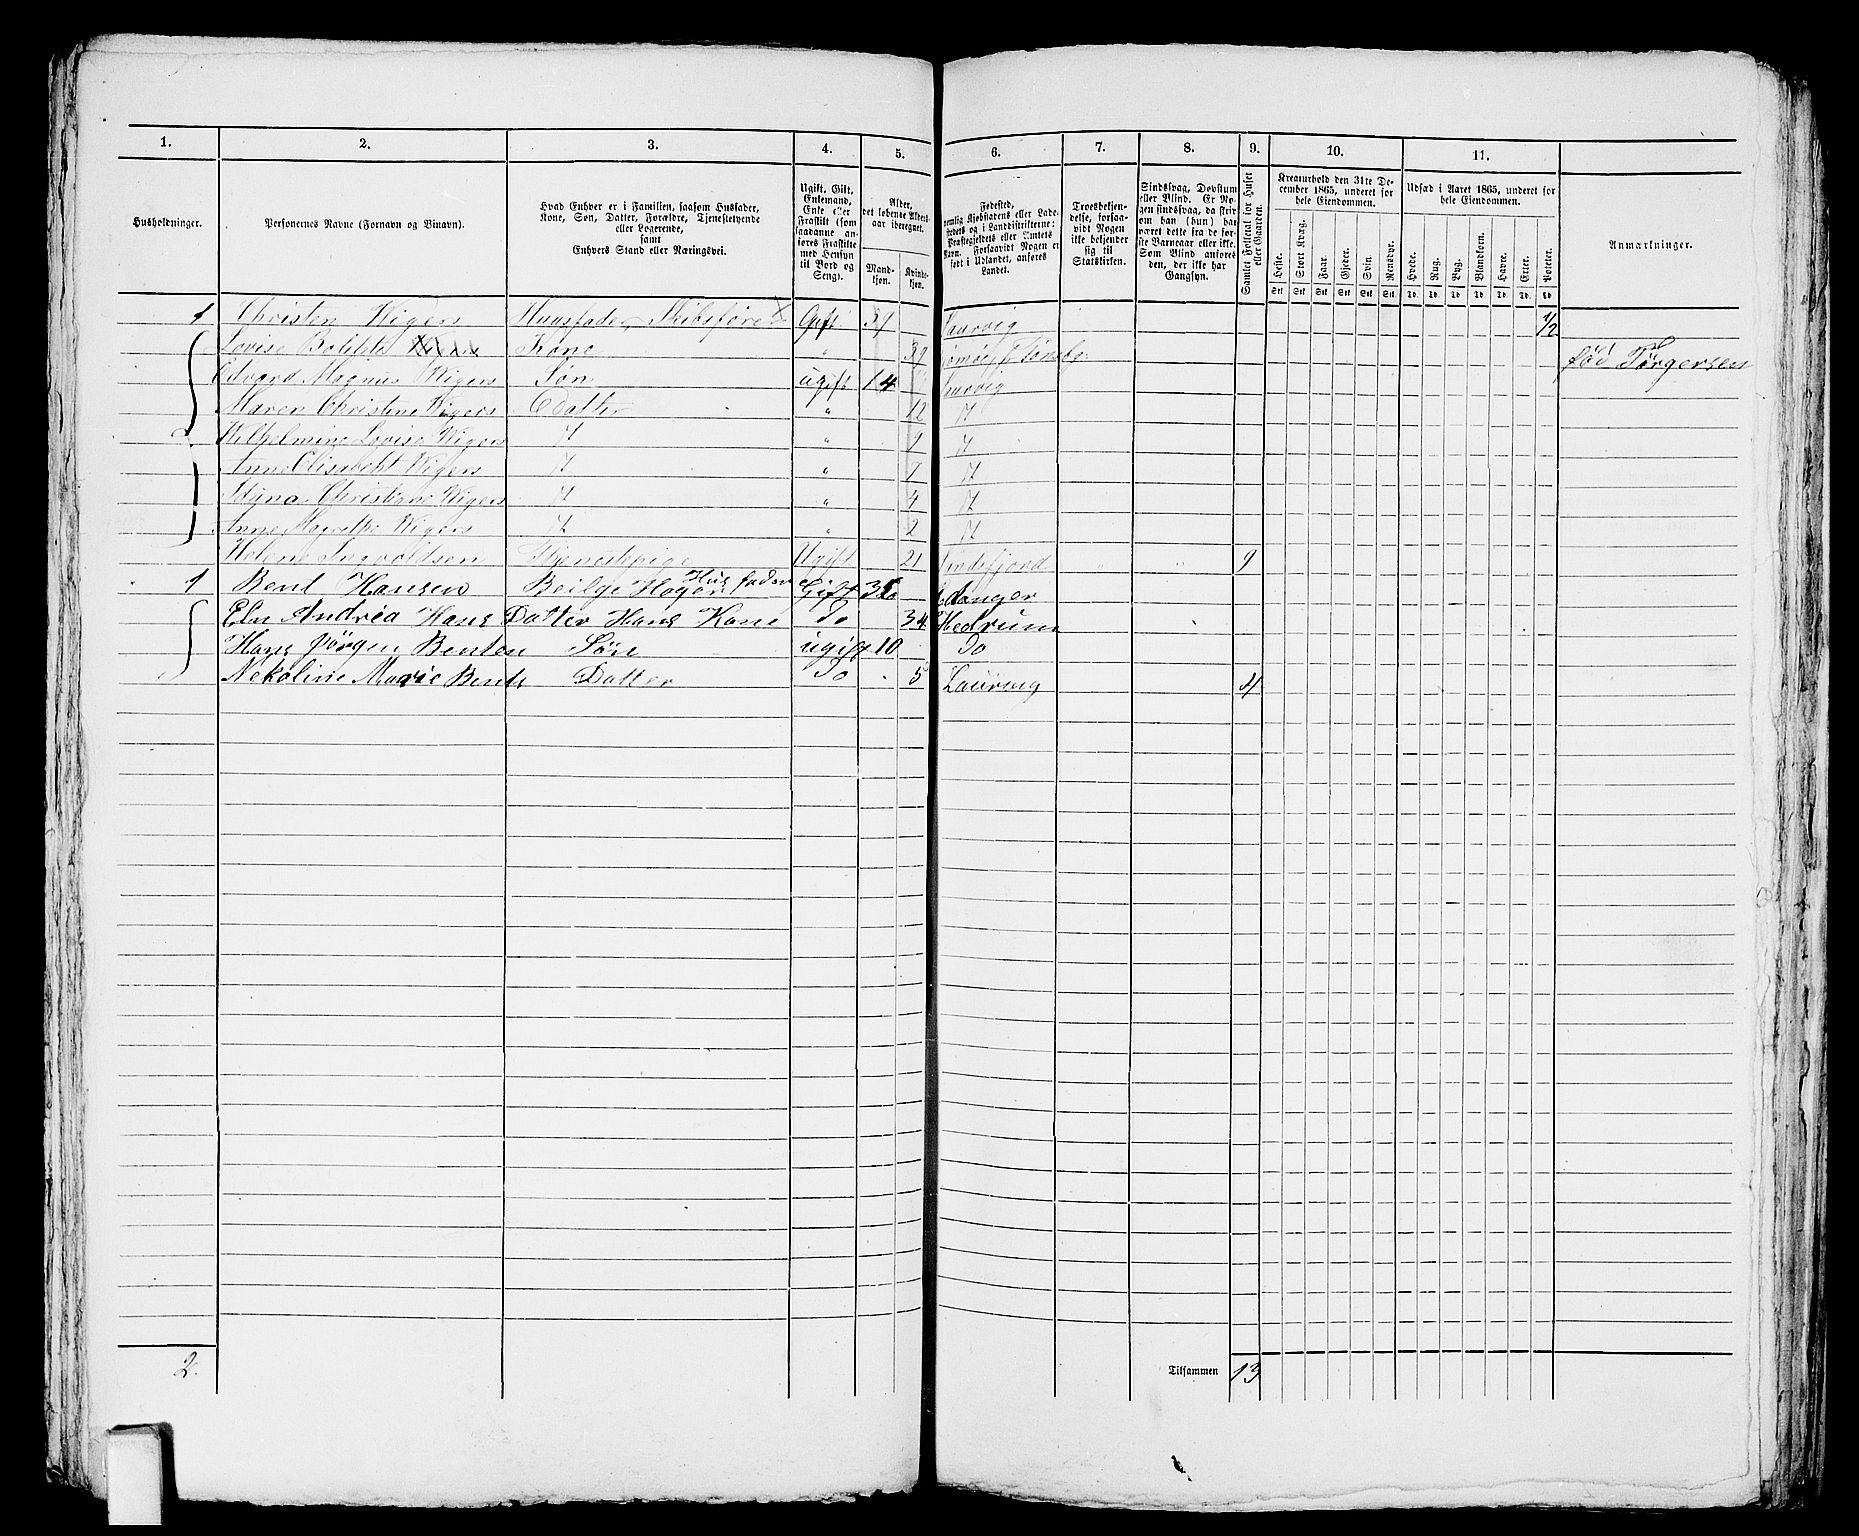 1. 2. 3. 4. 5. 6. 7. 8. 9. 10. 11.
Husholdninger.
Personernes Navne (Fornavn og Binavn).
Hvad Enhver er i Familien, saasom Husfader, Kone, Søn, Datter, Forældre, Tjenestetyende eller Logerende, samt Enhvers Stand eller Næringsvei.
Ugift, Gift, Enkemand, Enke eller Fraskilt (som saadanne anføres Fraskilte med Hensyn til Bord og Seng).
Alder, det løbende Alders aar iberegnet.
Mandkjøn. Kvindekjøn.
Fødested,
Troesbekjendelse, forsaavidt Nogen ikke bekjender sig til Statskirken.
Sindssvag, Døvstum eller Blind. Er Nogen sindssvag, da skrives om han (hun) har været dette fra de første Barneaar eller ikke. Som Blind anføres den, der ikke har Gangsyn.
Samlet Folketal for Huset eller Gaarden.
Kreaturhold den 31te December 1865, underet for hele Eiendommen.
Heste. Stort Kvæg. Faar. Gjeder. Svin. Rensdyr.
Udsæd i Aaret 1865, underet for hele Eiendommen.
Hvede. Rug. Byg. Blandkorn. Havre. Erter. Poteter.
Anmærkninger.
Stk Stk Stk Stk Stk Stk Td. Td. Td. Td. Td. Td. Td.
1 Christen Wigers Huusfader, Skibsfører Gift 39 Laurvig 1/2
Lovise Kone " 39 Tønsbg. fød Törgersen
Edvard Magnus Wigers Søn ugift 14 Laurvig
Maren Christine Wigers Datter " 12
Wilhelmine Lovise Wigers " 9
Anne Elisabeht Wigers " 7
Christiane Wigers " 4
Anne Wigers " 2
Helene Ingvoldsen Tjenestepige Ugift 21 9
1 Bent Hansen Husfader Gift Edanger
Eln Andrea Hans Datter Hans Kone Do 34 Hedrum
Hans Jörgen Benten Söne ugift 10 Do
Nekoline Marie Bents Datter Do 5 Laurvig 4
2. Tilsammen 13